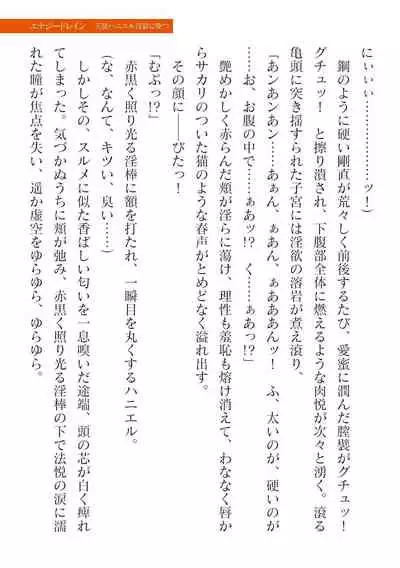 エナジードレイン
にぃぃぃ…………………ッ！）
　鋼のように硬い剛直が荒々しく前後するたび、愛蜜に潤んだ膣襞がグチュッ！
グチュッ！　と擦り潰され、下腹部全体に燃えるような肉悦が次々と湧く。滾る
亀頭に突き揺すられた子宮には淫欲の溶岩が煮え滾り、
「あンあンあン……ぁあん、ぁあん、ぁあああんッ！　ふ、太いのが、硬いのが
……お、お腹の中で……ぁあッ!?　く……ぁあっ!?」
　艶めかしく赤らんだ頬が淫らに蕩け、理性も羞恥も熔け消えて、わななく唇か
らサカリのついた猫のような春声がとめどなく溢れ出す。
　その顔に――びたっ！
「むぷっ!?」
　赤黒く照り光る淫棒に額を打たれ、一瞬目を丸くするハニエル。
（な、なんて、キツい、臭い……）
　しかしその、スルメに似た香ばしい匂いを一息嗅いだ途端、頭の芯が白く痺れ
てしまった。気づかぬうちに頬が弛み、赤黒く照り光る淫棒の下で法悦の涙に濡
れた瞳が焦点を失い、遥か虚空をゆらゆら、ゆらゆら。